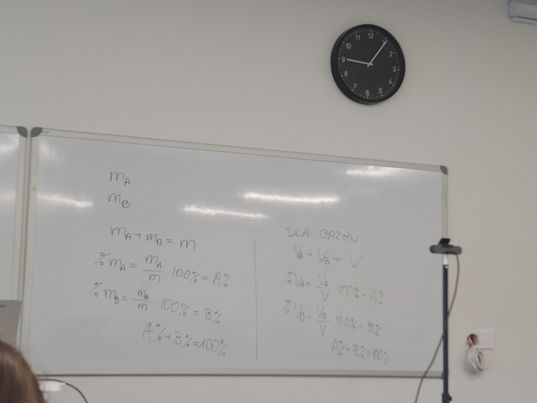 12
11
10
9
8
7
6
5
4
3
2
1
m_A
m_B
m_A + m_B = m
% m_A = m_A/m 100% = A%
% m_B = m_B/m 100% = B%
A% + B% = 100%
DLA GAZÓW
V_A + V_B = V
% V_A = V_A/V 100% = A%
% V_B = V_B/V 100% = B%
A% + B% = 100%